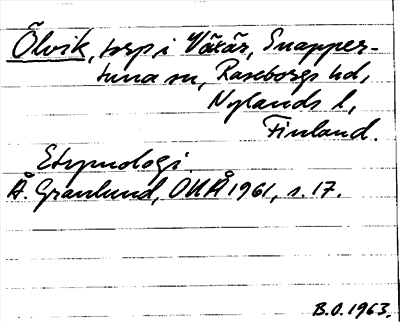 Ölvik, torp i Växär, Snapper-
tuna sn, Raseborgs hd,
Nylands l,
Finland.
Etymologi
Å. Granlund, OUÅ 1961, s. 17.
B.O. 1963.